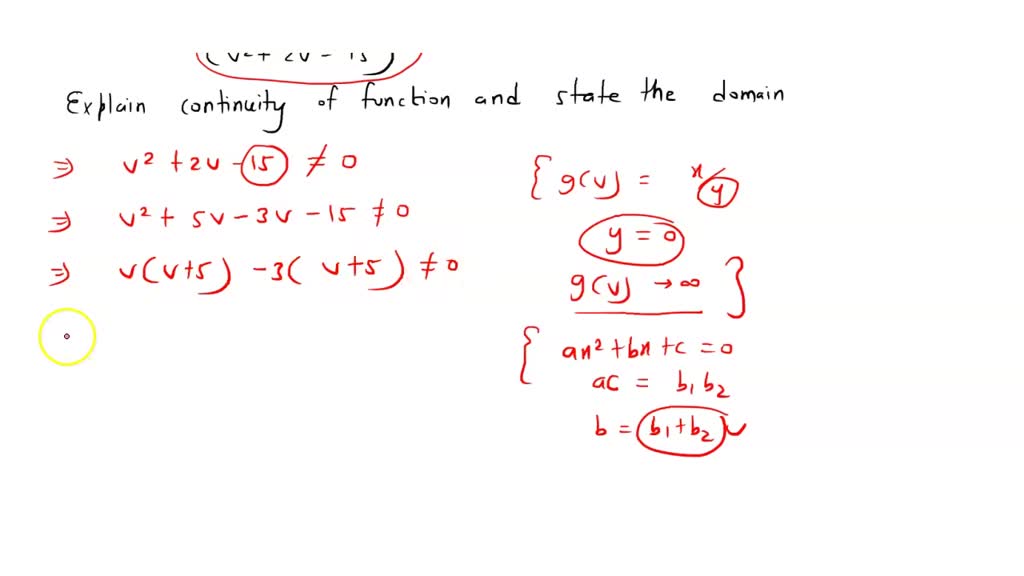 (v² + 2v - 15)
Explain continuity of function and state the domain
⇒ v² + 2v - 15 ≠ 0
⇒ v² + 5v - 3v - 15 ≠ 0
⇒ v(v+5) - 3(v+5) ≠ 0
{ g(v) = x/y
y = 0
g(v) → ∞ }
{ ax² + bx + c = 0
ac = b₁b₂
b = b₁+b₂